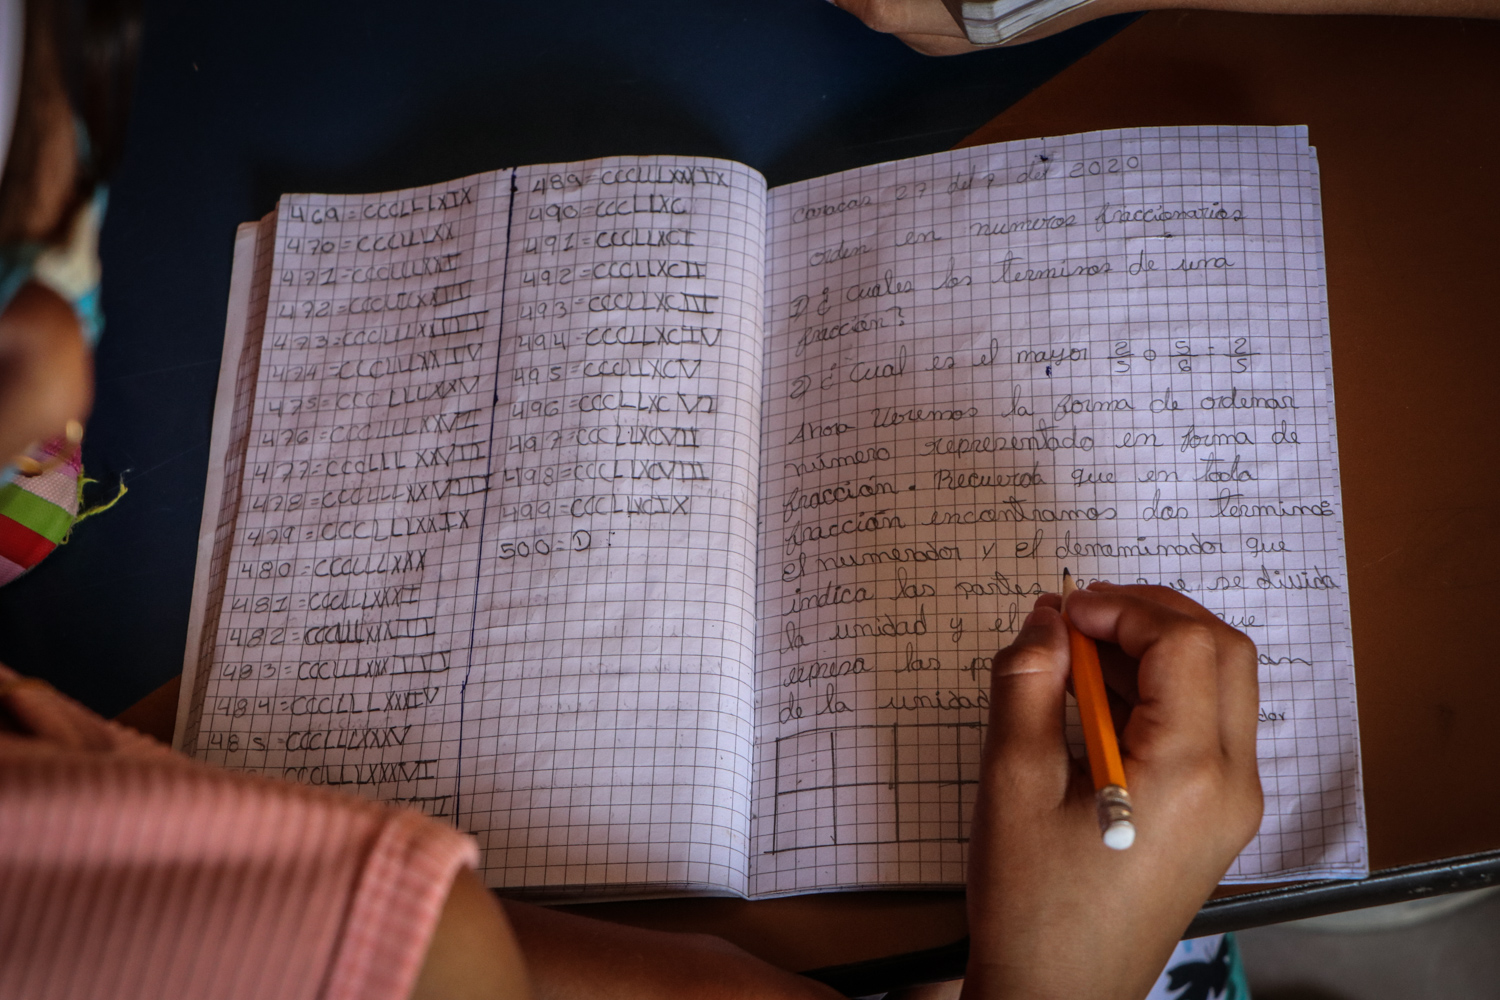 469=CCCLLLXIX
470=CCCLLLXX
471=CCCLLLXXI
472=CCCLLLXXIII
473=CCCLLLXXIIII
474=CCCLLLXXIV
475=CCCLLLXXV
476=CCCLLLXXVI
477=CCCLLLXXVII
478=CCCLLLXXVIII
479=CCCLLLXXIX
480=CCCLLLXXX
481=CCCLLLXXXI
482=CCCLLLXXXIII
483=CCCLLLXXXIIII
484=CCCLLLXXXIV
485=CCCLLLXXXV
CCCLLLXXXVI
489=CCCLLLXXXIX
490=CCCLLXC
491=CCCLLXCI
492=CCCLLXCII
493=CCCLLXCIII
494=CCCLLXCIV
495=CCCLLXCV
496=CCCLLXCVI
497=CCCLLXCVII
498=CCCLLXCVIII
499=CCCLLXCIX
500=D
Caracas 27 del 9 del 2020
orden en numeros fraccionarios
1) ¿ cuales los terminos de una
fracción?
2) ¿ Cual es el mayor 2/5 o 5/6 - 2/5
Ahora Veremos la forma de ordenar
número representado en forma de
fracción. Recuerda que en toda
fracción encontramos dos termino
el numerador y el denominador que
indica las partes en que se divida
la unidad y el que
expresa las an
de la unidad
dor